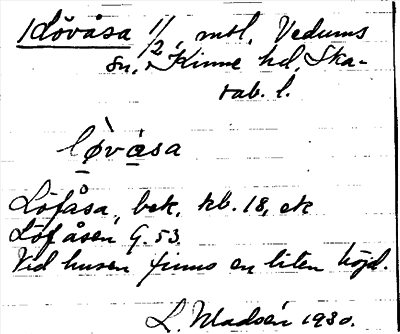 Lövåsa 1/2, mtl. Vedums
sn. Kinne hd. Ska-
rab. l.
l̲ø̀va̲sa
Löfåsa, bek. kb. 18, ek
Löfåsen G. 53.
Vid husen finns en liten höjd.
L. Madsén 1930.